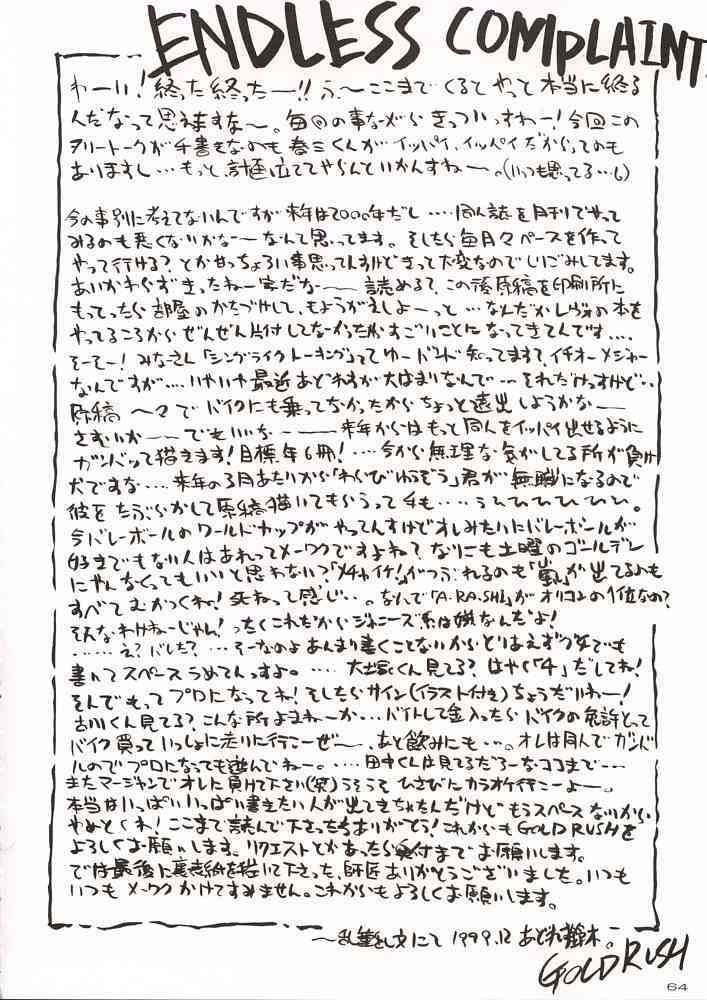 ENDLESS COMPLAINT
わーい!終った終ったー!!ふ、〜ここまでくるとやっと本当に終る
んだなって思えますな〜。毎回の事ながらきっついっすねー!今回この
フリートークが手書きなのも春三くんがイッパイ、イッパイだからってのも
ありますし…もっと計画立ててやらんといかんすねー。(いつも思ってる…し)
今の事別に考えてないんですが来年は2000年だし‥‥同人誌を月刊でやって
みるのも悪くないかなーなんて思ってます。そしたら毎月々ペースを作って
やって行ける?とかせっちょろい事思ってんすけどきっと大変なのでしりごみしてます。
あいかわらずきったねー字だなー 読めるて、この後原稿を印刷所に
もってったら部屋のかたづけして、もようがえしよーっと…なんだかレヴォの本を
やってるころからぜんぜん片付してなかったからすごいことになってきてんです‥‥
そーそー!みなさん「シングライクトーキング」ってゆーバンド知ってます?イチオーメジャー
なんですが‥‥いやいや最近あどれすが大はまりなんで…それだけっすけど‥
原稿 〜々でバイクにも乗ってなかったからちょっと遠出しようかなー
さむいかーーでもいいなーー来年からはもっと同人をイッパイ出せるように
ガンバッて描きます!目標年6冊!‥‥今から無理な気がしてる所が負け
犬ですな‥‥来年の3月あたいから「わらびゆうぞう」君が無職になるので
彼をたぶらかして原稿描いてもらうって手も‥‥うひひひひひひ。
今バレーボールのワールドカップがやってんすけどオレみたいにバレーボールが
好きでもない人はあれってメーワクですよねて なにも土曜のゴールデン
にやんなくってもいいと思わない?「メチャイケ!」がつぶれるのも「嵐」が出てるのも
すべてむかつくね!死ねって感じ…。なんで「A・RA・SHI」がオリコンの1位なの?
そんなわけねーじゃん!ったくこれだからジャニーズ系は嫌なんだよ!
……え?バレた?…そーなのよあんまり書くことないからとりあえず文字でも
書いてスペースうめてんっすよ。‥‥大塚くん見てる?はやく「4」だしてね!
そんでもってプロになってね!そしたらサイン(イラスト付き)ちょうだいねー!
古川くん見てる?こんな所よまねーか…バイトして金入ったらバイクの免許とって
バイク買っていっしょに走りに行こーぜ〜、あと飲みにも…。オレは同人でガンバ
ルのでプロになっても遊んでねー。‥‥田中くんは見てるだろーなココまで…
またマージャンでオレに負けて下さい(笑)うそうそ ひさびにカラオケ行こーよー。
本当はいっぱいいっぱい書きたい人が出てきちゃたんだけどもうスペースないから
やめとくね!ここまで読んで下さったちありがとう!これからもGOLD RUSHを
よろしくお願いします。リクエストとかあったら受付までお願いします。
では最後に裏表紙を描いて下さった、師匠ありがとうございました。いつも
いつもメーワクかけてすみません。これからもよろしくお願いします。
〜乱筆乱文にて 1999.12 あどれす鈴木。
GOLD RUSH
64